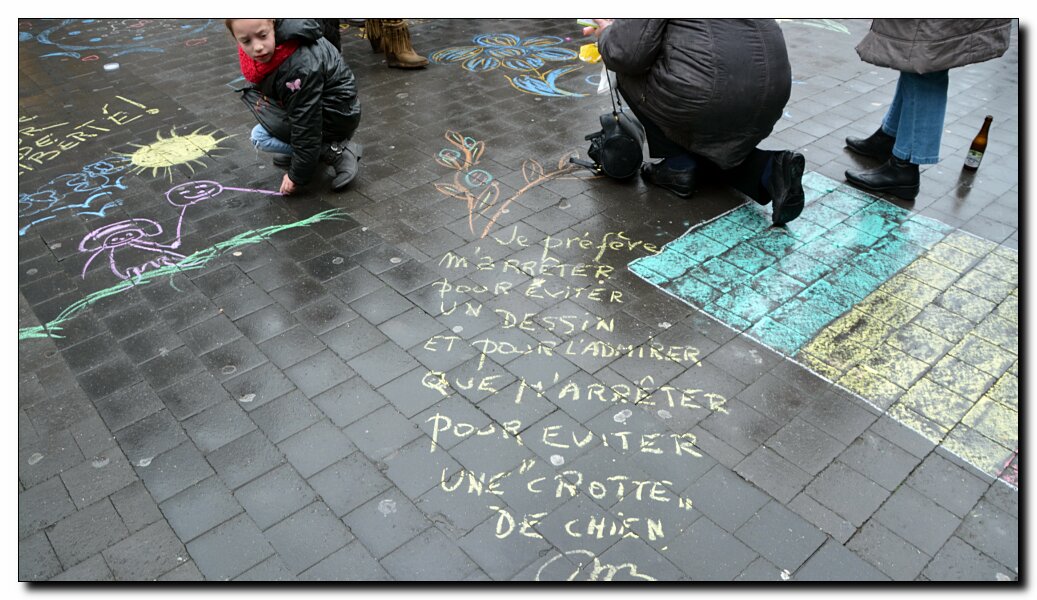 LIBERTÉ!
Je préfère
M'ARRÊTER
POUR ÉVITER
UN DESSIN
ET POUR L'ADMIRER
QUE M'ARRÊTER
POUR EVITER
UNE "CROTTE"
DE CHIEN